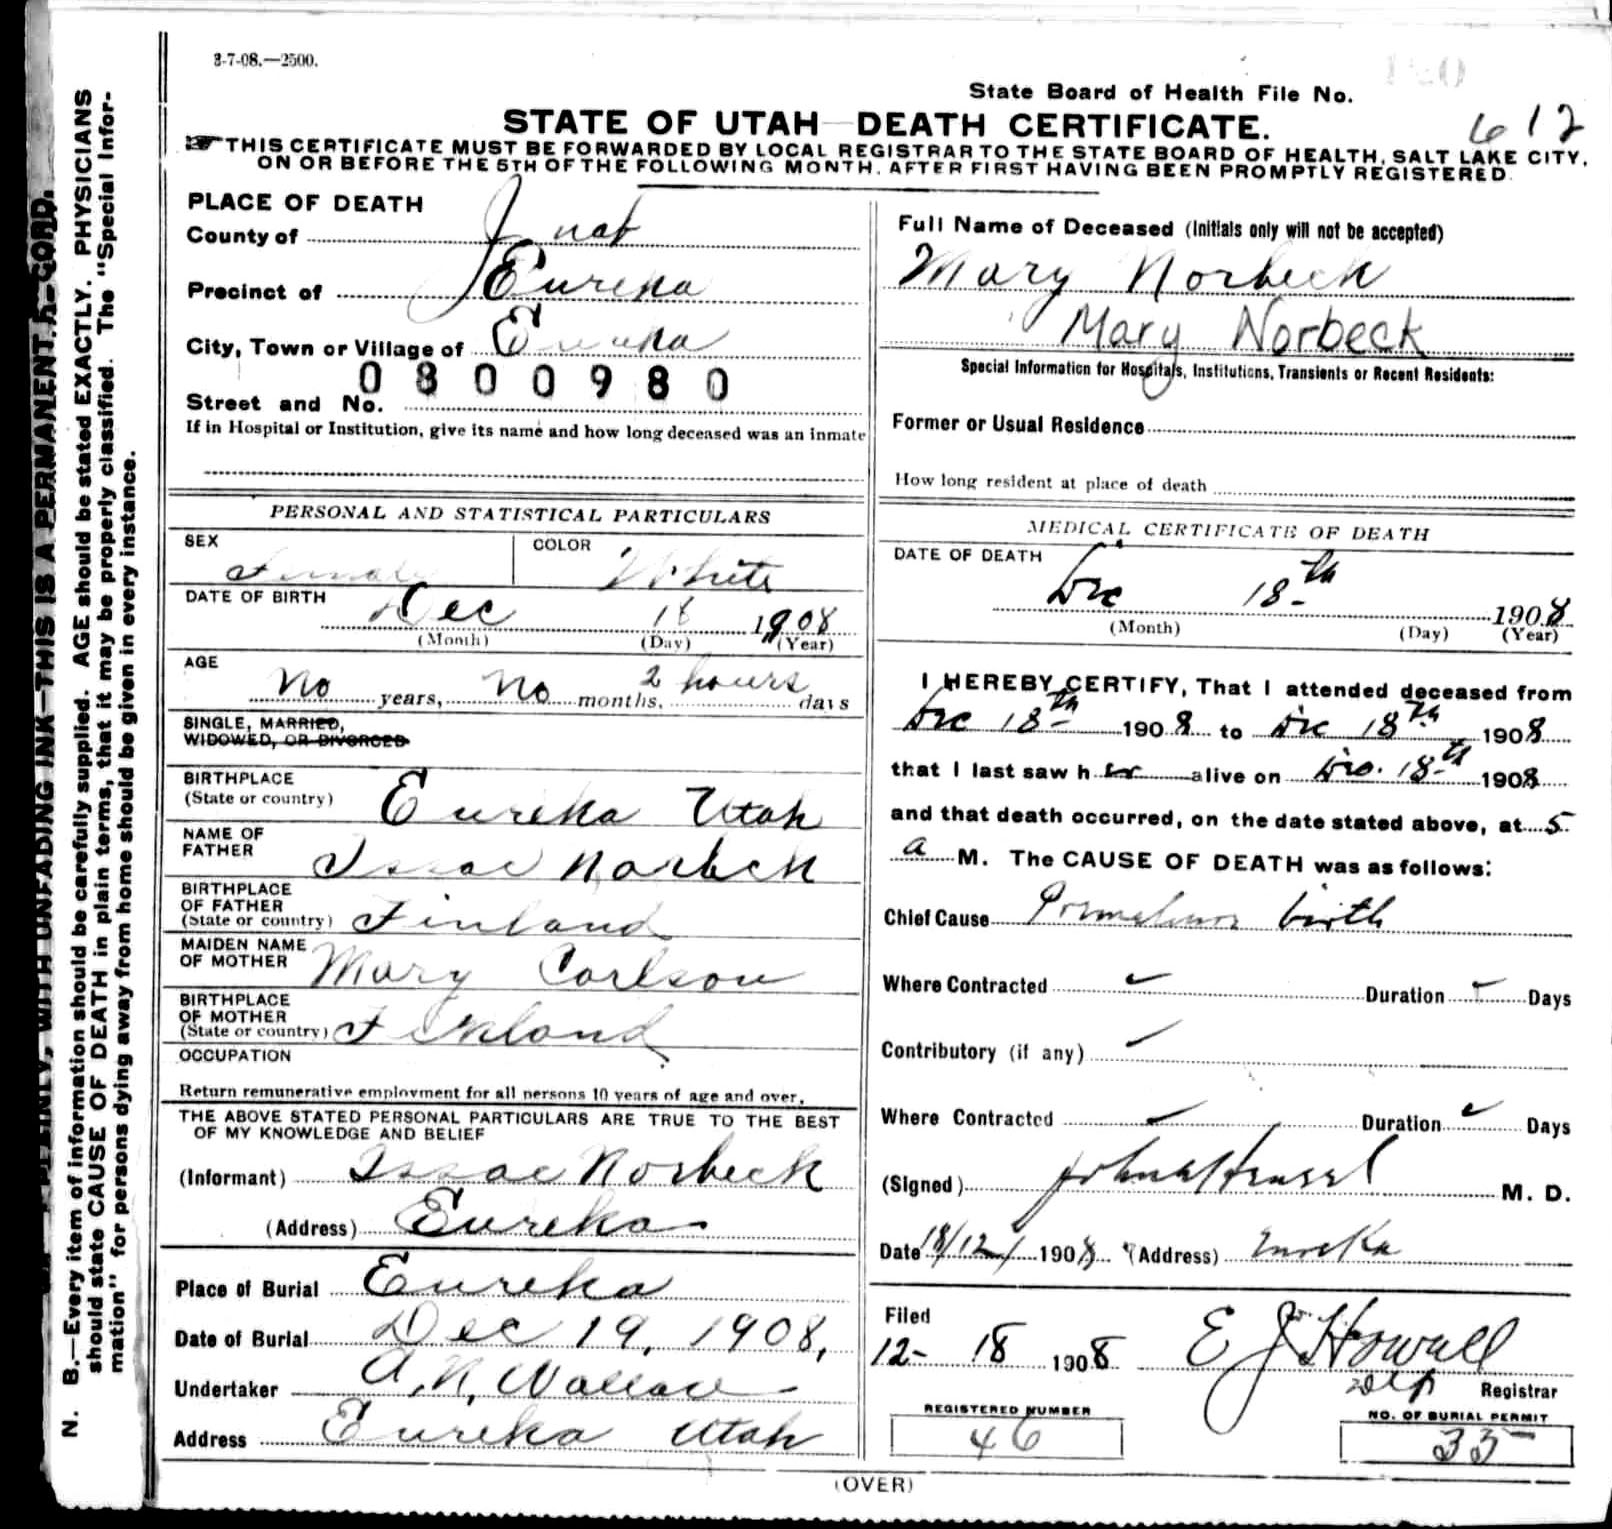 3-7-08.—2500.
State Board of Health File No.
612
STATE OF UTAH—DEATH CERTIFICATE.
THIS CERTIFICATE MUST BE FORWARDED BY LOCAL REGISTRAR TO THE STATE BOARD OF HEALTH, SALT LAKE CITY,
ON OR BEFORE THE 5TH OF THE FOLLOWING MONTH, AFTER FIRST HAVING BEEN PROMPTLY REGISTERED.
PLACE OF DEATH
County of Juab
Precinct of Eureka
City, Town or Village of Eureka
0300980
Street and No.
If in Hospital or Institution, give its name and how long deceased was an inmate
PERSONAL AND STATISTICAL PARTICULARS
SEX Female COLOR White
DATE OF BIRTH Dec 18 1908
(Month) (Day) (Year)
AGE
No years, No months, 2 hours days
SINGLE, MARRIED,
WIDOWED, OR DIVORCED
BIRTHPLACE
(State or country) Eureka Utah
NAME OF
FATHER Isaac Norbeck
BIRTHPLACE
OF FATHER
(State or country) Finland
MAIDEN NAME
OF MOTHER Mary Carlson
BIRTHPLACE
OF MOTHER
(State or country) Finland
OCCUPATION
Return remunerative employment for all persons 10 years of age and over.
THE ABOVE STATED PERSONAL PARTICULARS ARE TRUE TO THE BEST
OF MY KNOWLEDGE AND BELIEF
(Informant) Isaac Norbeck
(Address) Eureka
Place of Burial Eureka
Date of Burial Dec 19, 1908,
Undertaker A. N. Wallace
Address Eureka Utah
Full Name of Deceased (Initials only will not be accepted)
Mary Norbeck
Mary Norbeck
Special Information for Hospitals, Institutions, Transients or Recent Residents:
Former or Usual Residence
How long resident at place of death
MEDICAL CERTIFICATE OF DEATH
DATE OF DEATH
Dec 18th 1908
(Month) (Day) (Year)
I HEREBY CERTIFY, That I attended deceased from
Dec 18th 1908 to Dec 18th 1908
that I last saw her alive on Dec. 18th 1908
and that death occurred, on the date stated above, at 5
a M. The CAUSE OF DEATH was as follows:
Chief Cause Premature birth
Where Contracted Duration Days
Contributory (if any)
Where Contracted Duration Days
(Signed) M. D.
Date 18/12/ 1908 (Address) Eureka
Filed
12- 18 1908 E J Howell
Dep Registrar
REGISTERED NUMBER
46
NO. OF BURIAL PERMIT
35
(OVER)
WITH UNFADING INK—THIS IS A PERMANENT
N. B.—Every item of information should be carefully supplied. AGE should be stated EXACTLY. PHYSICIANS
should state CAUSE OF DEATH in plain terms, that it may be properly classified. The "Special Infor-
mation" for persons dying away from home should be given in every instance.